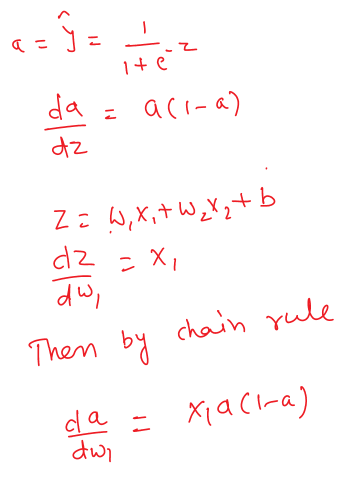 a = ŷ = 1/(1 + e^-z)
da/dz = a(1-a)
z = w₁x₁ + w₂x₂ + b
dz/dw₁ = x₁
Then by chain rule
da/dw₁ = x₁a(1-a)